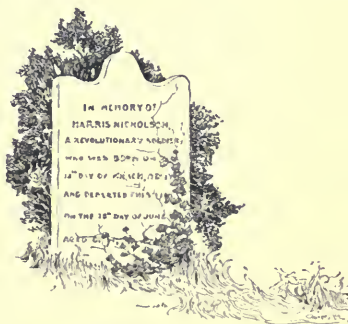 IN MEMORY OF
HARRIS NICHOLSON,
A REVOLUTIONARY SOLDIER,
WHO WAS BORN ON
DAY OF
AND DEPARTED THIS LIFE
ON THE 18TH DAY OF JUNE
AGED